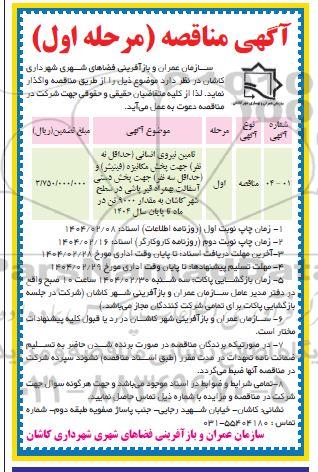 آگهی مناقصه (مرحله اول)
سازمان عمران و بازآفرینی فضاهای شهری شهرداری
کاشان در نظر دارد موضوع ذیل را از طریق مناقصه واگذار
نماید. لذا از کلیه متقاضیان حقیقی و حقوقی جهت شرکت در
مناقصه دعوت به عمل می‌آید.
شماره آگهی
نوع آگهی
مرحله
موضوع آگهی
مبلغ تضمین(ریال)
۰۴-۰۱
مناقصه
اول
تامین نیروی انسانی (حداقل نه
نفر) جهت پخش مکانیزه (فینیشر) و
(حداقل سه نفر) جهت پخش دستی
آسفالت به همراه قیرپاشی در سطح
شهر کاشان به مقدار ۹۰۰۰ تن در
ماه تا پایان سال ۱۴۰۴
۳/۷۵۰/۰۰۰/۰۰۰
۱- زمان چاپ نوبت اول (روزنامه اطلاعات) اسناد: ۱۴۰۴/۰۲/۰۸
۲- زمان چاپ نوبت دوم (روزنامه کاروکارگر) اسناد: ۱۴۰۴/۰۲/۱۶
۳- آخرین مهلت دریافت اسناد: تا پایان وقت اداری مورخ ۱۴۰۴/۰۲/۲۸
۴- مهلت تسلیم پیشنهادها: تا پایان وقت اداری مورخ ۱۴۰۴/۰۲/۲۹
۵- زمان بازگشایی پاکات: سه شنبه ۱۴۰۴/۰۲/۳۰ ساعت ۱۰ صبح واقع
در دفتر مدیر عامل سازمان عمران و بازآفرینی شهر کاشان (شرکت در جلسه
بازگشایی پاکت برای تمامی شرکت کنندگان مجاز می‌باشد.)
۶- سازمان عمران و بازآفرینی شهر کاشان در رد یا قبول کلیه پیشنهادات
مختار است.
۷- در صورتیکه برندگان مناقصه در صورت برنده شدن حاضر به تسلیم
ضمانت نامه تعهدات در مدت مقرر (طبق اسناد مناقصه) نشوند سپرده شرکت
در مناقصه آنها ضبط می‌گردد.
۸- تمامی شرایط و ضوابط در اسناد موجود می‌باشد و جهت هرگونه سوال جهت
شرکت در مناقصه و مزایده با شماره ذیل تماس حاصل نمایید.
نشانی: کاشان- خیابان شهید رجایی- جنب پاساژ صفویه طبقه دوم- شماره
تماس: ۵۵۴۰۴۱۸۰-۰۳۱
سازمان عمران و بازآفرینی فضاهای شهری شهرداری کاشان